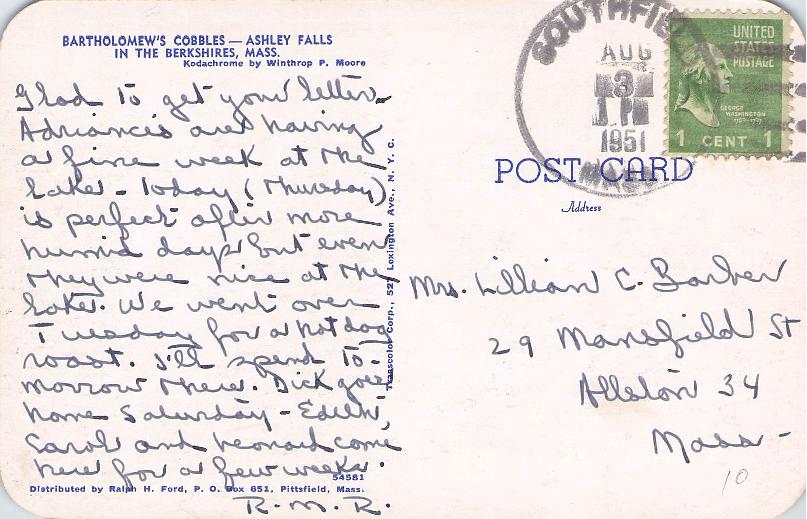 BARTHOLOMEW'S COBBLES — ASHLEY FALLS
IN THE BERKSHIRES, MASS.
Kodachrome by Winthrop P. Moore
Glad to get your letter.
Adriance's are having
a fine week at the
Lake - Today (Thursday)
is perfect after more
humid days but even
they were nice at the
Lake. We went over
Tuesday for a hot dog
roast. I'll spend to-
morrow there. Dick goes
home Saturday - Edith,
Carol and Leonard come
here for a few weeks.
R.M.R.
54581
Distributed by Ralph H. Ford, P. O. Box 651, Pittsfield, Mass.
Transcolor Corp., 527 Lexington Ave., N. Y. C.
SOUTHFIEL
AUG
3
1 PM
1951
MASS
UNITED
STATES
POSTAGE
GEORGE
WASHINGTON
1 CENT 1
POST CARD
Address
Mrs. Lillian C. Barber
29 Mansfield St
Allston 34
Mass -
10